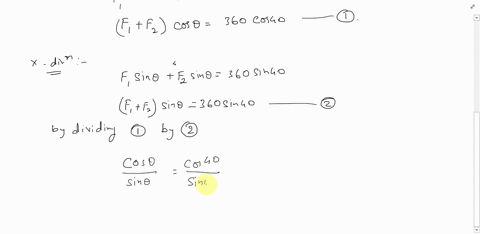 (F₁ + F₂) cosθ = 360 cos40 —— ①.
x - divⁿ :-
F₁ sinθ + F₂ sinθ = 360 sin40
(F₁+F₂) sinθ = 360 sin40 —— ②
by dividing ① by ②
cosθ / sinθ = cos40 / sin